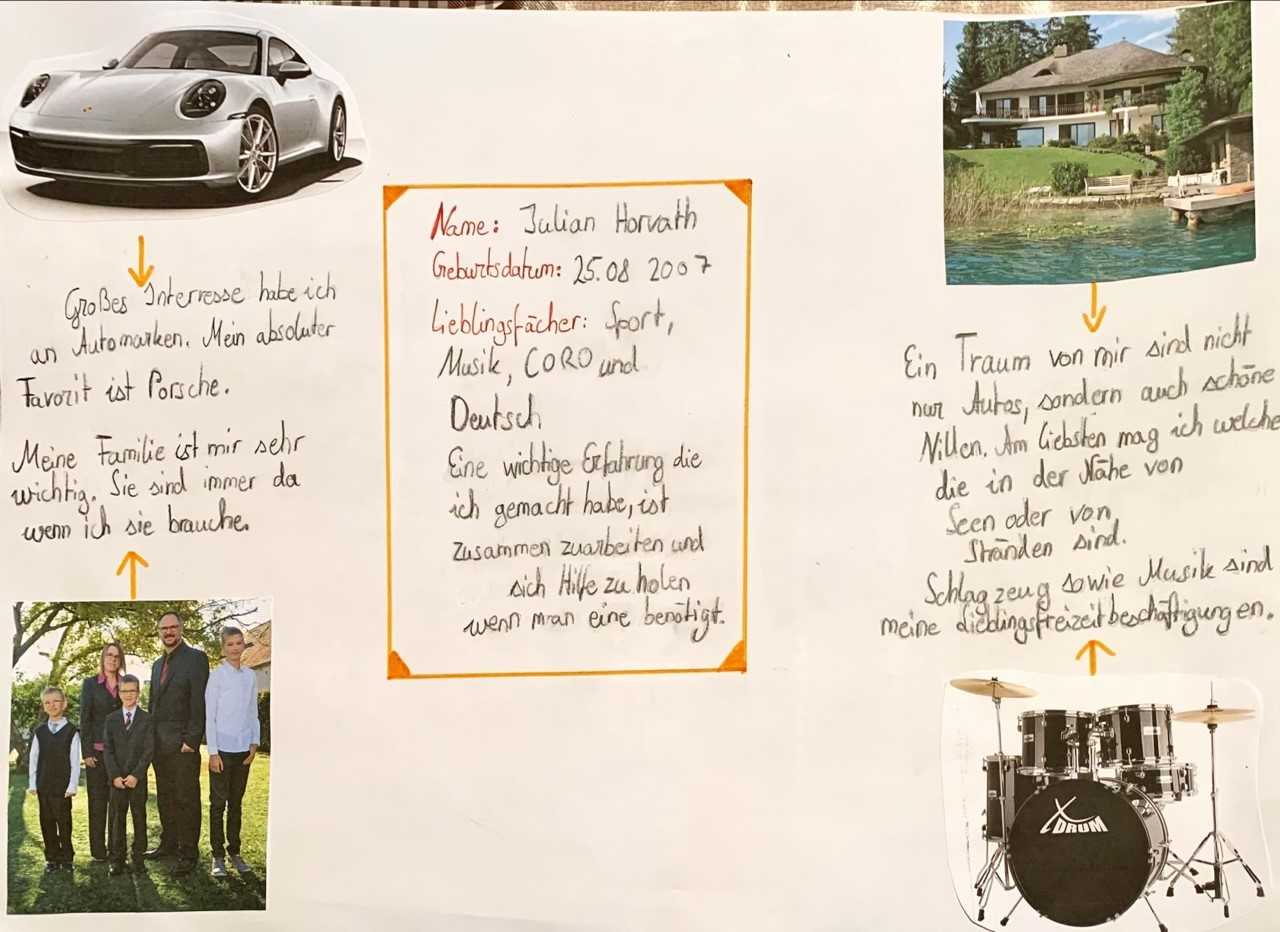 Großes Interresse habe ich
an Automarken. Mein absoluter
Favorit ist Porsche.
Meine Familie ist mir sehr
wichtig. Sie sind immer da
wenn ich sie brauche.
Name: Julian Horvath
Geburtsdatum: 25.08 2007
Lieblingsfächer: Sport,
Musik, CORO und
Deutsch
Eine wichtige Erfahrung die
ich gemacht habe, ist
zusammen zuarbeiten und
sich Hilfe zu holen
wenn man eine benötigt.
Ein Traum von mir sind nicht
nur Autos, sondern auch schöne
Villen. Am liebsten mag ich welche
die in der Nähe von
Seen oder von
Stränden sind.
Schlagzeug sowie Musik sind
meine Lieblingsfreizeitbeschäftigungen.
XDRUM